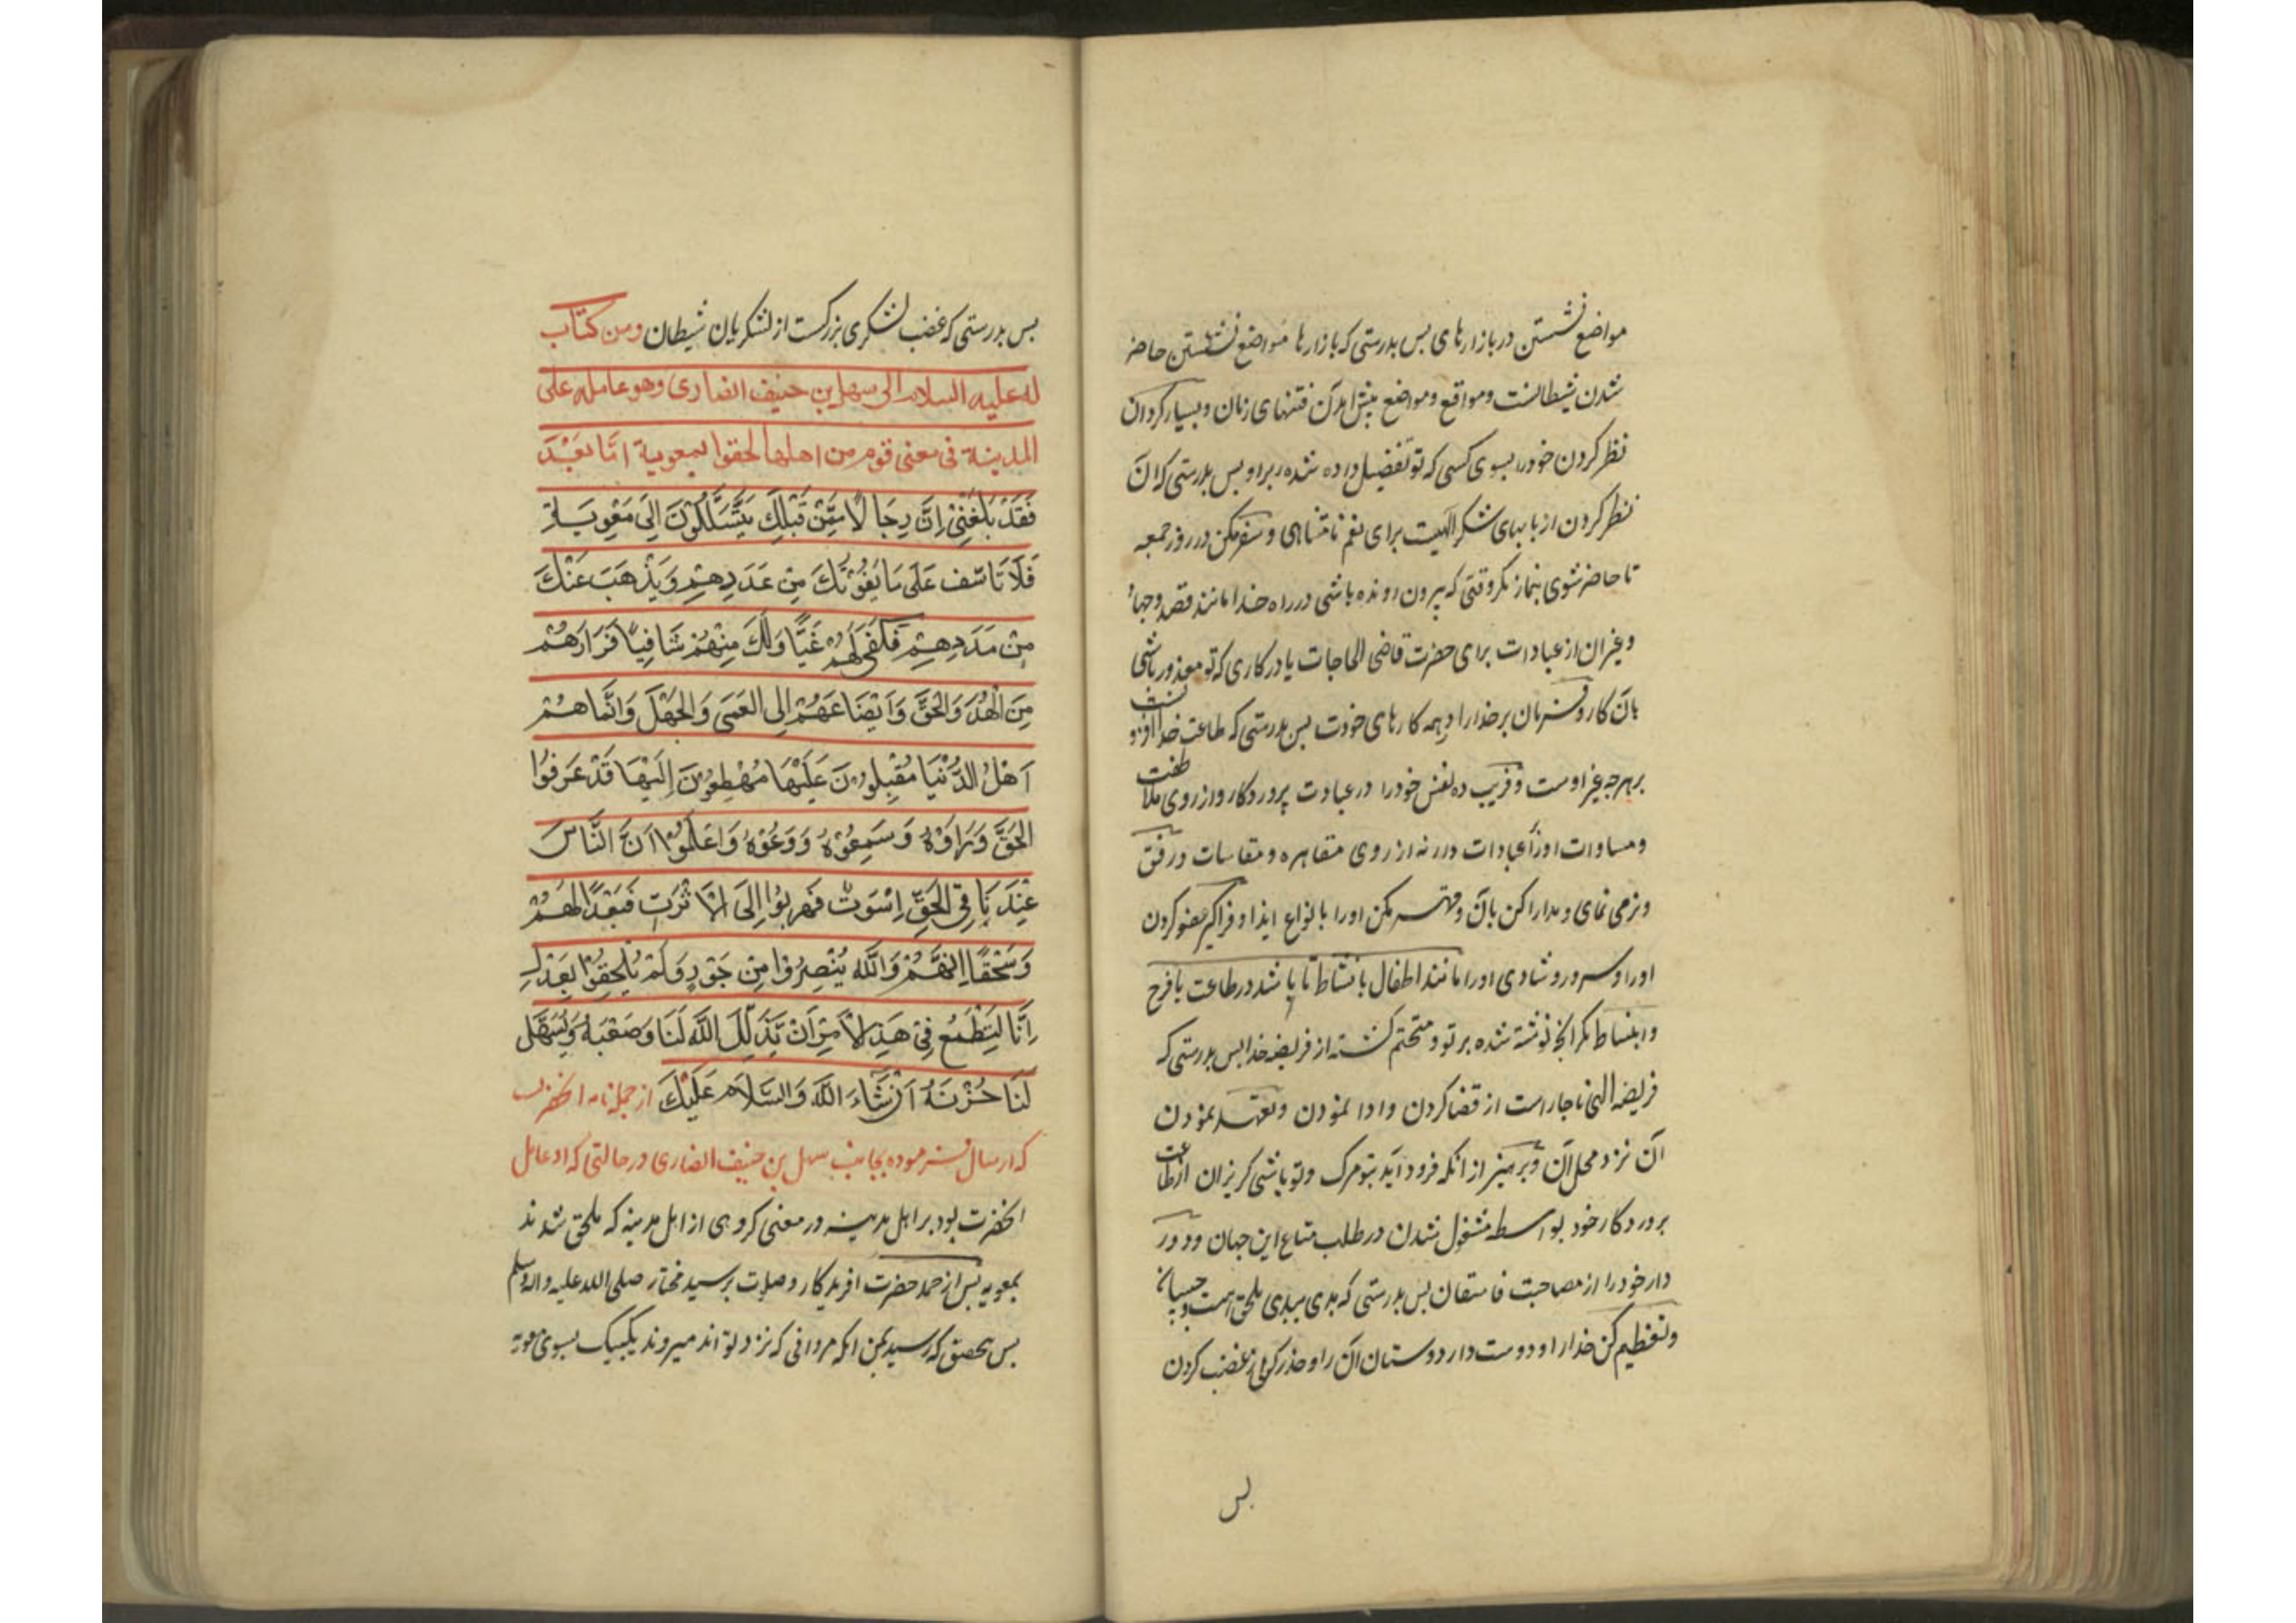 مواضع نشستن در بازارهای پس بدرستی که بازارها مواضع نشستن حاضر
شدن شیطانست ومواقع ومواضع پیش امدن فتنهای زنان وبسیار کردان
نظر کردن خودرا بسوی کسی که تو تفضیل داده شده بر او پس بدرستی که ان
نظر کردن از بابهای شکر الهیت برای نعم نامتناهی و سفر مکن در روز جمعه
تا حاضر شوی بنماز مکر وقتی که بیرون رونده باشی در راه خدا مانند قصد وجهاد
وغیر ان از عبادات برای حضرت قاضی الحاجات یا در کاری که تو معذور باشی
بان کار وفرمان بر خدارا در همه کارهای خودت پس بدرستی که طاعت خدا افزونست
بر هرچه غیر اوست وفریب ده نفس خودرا در عبادت پروردکار واز روی ملاطفت
ومساوات اورا عبادات در نه از روی مقاهره ومقاسات ورفق
ونرمی نمای ومدارا کن بان وقهر مکن اورا بانواع ایذا وفراکیر عفو کردن
اورا وسرور وشادی اورا مانند اطفال بانشاط تا باشد در طاعت بافرح
وانبساط مکر انچه نوشته شده بر تو ومتحتم کشته از فریضه خدا پس بدرستی که
فریضه الهی ناچار است از قضا کردن وادا نمودن وتعهد نمودن
ان نزد محل ان وبپرهیز از انکه فرود اید بتو مرک وتو باشی کریزان از طاعت
پروردکار خود بواسطه مشغول شدن در طلب متاع این جهان ودور
دار خودرا از مصاحبت فاسقان پس بدرستی که بدی ببدی ملحق است وچسپان
وتعظیم کن خدارا ودوست دار دوستان ان را وحذر کن از غضب کردن
پس
پس بدرستی که غضب لشکری بزرکست از لشکریان شیطان ومن کتاب
له علیه السلام الی سهل بن حنیف انصاری وهو عامله علی
المدینة فی معنی قوم من اهلها لحقوا بمعویة امّا بَعْدَ
فَقَدْ بَلَغَنِیْ اِنَّ رِجَالًا مِمَّنْ قَبْلِكَ یَتَسَلَّلُوْنَ اِلیَ مَعْوِیَةِ
فَلَا تَاسَف عَلَی مَا یَفُوْتَكَ مِنْ عَدَدِهِمْ وَیَذْهَبَ عَنْكَ
مِنْ مَدَدِهِمْ فَکَفَی لَهُمْ غَیًّا وَلَكَ مِنْهُمْ شَافِیًا فَرَارَهُمْ
مِنَ الْهُدَ وَالْحَقَّ وَاَیْضَاعَهُمْ اِلی العَمَی وَالجَهْلَ وَانَّمَا هُمْ
اَهْلُ الدُّنْیَا مُقْبِلُوْنَ عَلَیْهَا مُهْطِعُوْنَ اِلَیْهَا قَدْ عَرَفُوْا
الحَقَّ وَرَاَوْهُ وَسَمِعُوْهُ وَوَعَوْهُ وَاعَلَمُوْا اَنَّ النَّاسَ
عِنْدَنَا فِی الحَقِّ اِسْوَتٌ فَهَرَبُوْا اِلَی الْاَثَرَتِ فَبُعْدًا لَهُمْ
وَسَحْقًا اِنَّهُمْ وَاللّٰه یُنْصِرُوْا مِنْ جَوْرٍ وَلَمْ یَلْحِقُوْا بِعَدْلٍ
اِنَّا لَنَطْمَعُ فِیْ هَذِ الْاَمْرِ اَنْ یَّذَلِّلَ اللّٰهَ لَنَا وَصَعْبَهُ وَیُسَهِّلَ
لَنَا حُزْنَهُ اَنْ شَاءَ اللّٰه وَالسَّلَامَ عَلَیْكَ از جمله نامه انحضرت
که ارسال فرموده بجانب سهل بن حنیف انصاری در حالتی که او عامل
انحضرت بود بر اهل مدینه در معنی کروهی از اهل مدینه که ملحق شدند
بمعویه پس از حمد حضرت افریدکار وصلوات بر سید مختار صلی الله علیه واله وسلم
پس بتحقیق که رسید بمن انکه مردانی که نزد تو اند میروند یکبیک بسوی معویه